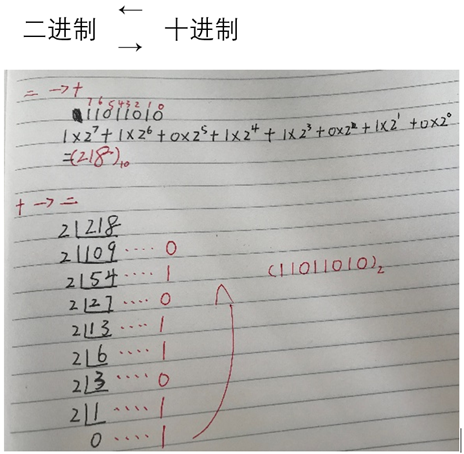 二进制 ← → 十进制
二 → 十
7 6 5 4 3 2 1 0
11011010
1×2⁷+1×2⁶+0×2⁵+1×2⁴+1×2³+0×2²+1×2¹+0×2⁰
=(218)₁₀
十 → 二
2|218
2|109 ···· 0
2|54 ···· 1
(11011010)₂
2|27 ···· 0
2|13 ···· 1
2|6 ···· 1
2|3 ···· 0
2|1 ···· 1
0 ···· 1